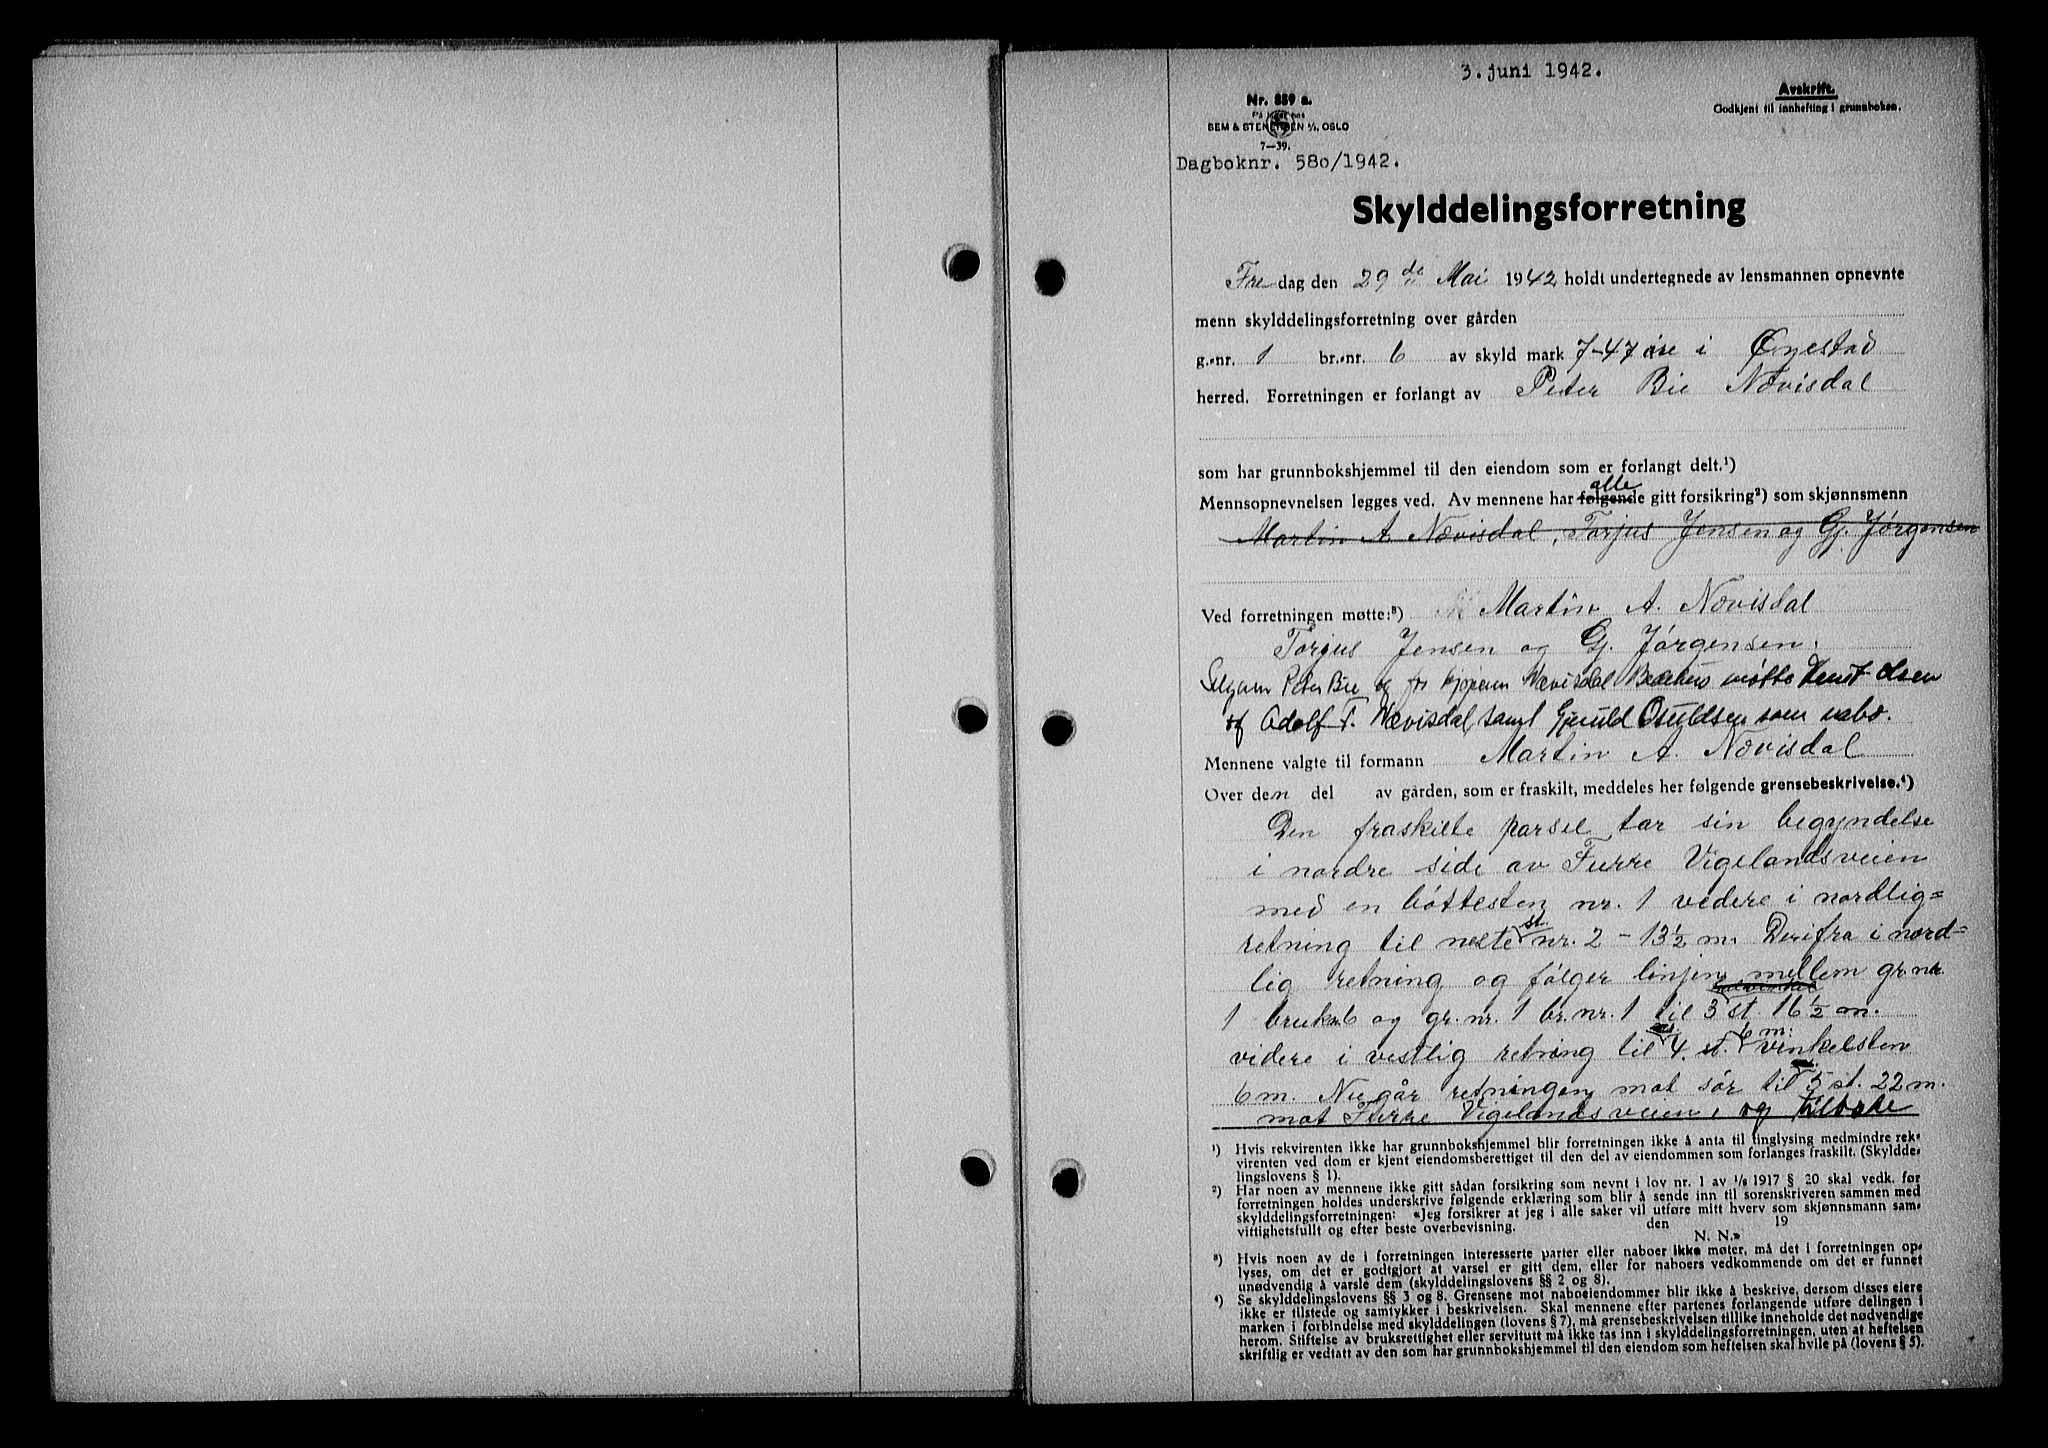 3. juni 1942.
Avskrift.
Godkjent til innhefting i grunnboken.
Nr. 859 a.
På lager hos
SEM & STENERSEN A/S, OSLO
7—39.
Dagboknr. 580/1942.
Skylddelingsforretning
Fredag den 29de Mai 1942 holdt undertegnede av lensmannen opnevnte
menn skylddelingsforretning over gården
g.-nr. 1 br.-nr. 6 av skyld mark 7-47 øre i Øyestad
herred. Forretningen er forlangt av Peter Bie Nævisdal
som har grunnbokshjemmel til den eiendom som er forlangt delt.¹)
alle
Mennsopnevnelsen legges ved. Av mennene har følgende gitt forsikring²) som skjønnsmenn
Martin A. Nævisdal, Torjus Jensen og Gj. Jørgensen
Ved forretningen møtte:³) Martin A. Nævisdal
Torjus Jensen og Gj. Jørgensen.
Selgeren Peter Bie og for kjøperen Nævisdal Bedehus møtte Knut Olsen
og Adolf T. Nævisdal, samt Gjeruld Osuldsen som nabo.
Mennene valgte til formann Martin A. Nævisdal
Over den del av gården, som er fraskilt, meddeles her følgende grensebeskrivelse.⁴)
Den fraskilte parsel tar sin begyndelse
i nordre side av Furre Vigelandsveien
med en bøttesten nr. 1 videre i nordlig=
retning til neste st nr. 2 - 13½ m. Derifra i nord=
lig retning og følger linjen mellem gr. nr.
1 bruknr 6 og gr. nr. 1 br. nr. 1 til 3 st. 16½ m.
videre i vestlig retning til 4. st. 6 m. vinkelsten
6 m. Nu går retningen mot sør til 5 st. 22 m.
mot Furre Vigelandsveien, og tilbake
¹) Hvis rekvirenten ikke har grunnbokshjemmel blir forretningen ikke å anta til tinglysing medmindre rek-
virenten ved dom er kjent eiendomsberettiget til den del av eiendommen som forlanges fraskilt. (Skyldde-
lingslovens § 1).
²) Har noen av mennene ikke gitt sådan forsikring som nevnt i lov nr. 1 av 1/6 1917 § 20 skal vedk. før
forretningen holdes underskrive følgende erklæring som blir å sende inn til sorenskriveren sammen med
skylddelingsforretningen: «Jeg forsikrer at jeg i alle saker vil utføre mitt hverv som skjønnsmann sam-
vittighetsfullt og efter beste overbevisning. den 19
N. N.»
³) Hvis noen av de i forretningen interesserte parter eller naboer ikke møter, må det i forretningen op-
lyses, om det er godtgjort at varsel er gitt dem, eller for naboers vedkommende om det er funnet
unødvendig å varsle dem (skylddelingslovens §§ 2 og 8).
⁴) Se skylddelingslovens §§ 3 og 8. Grensene mot naboeiendommer blir ikke å beskrive, dersom disses eiere
ikke er tilstede og samtykker i beskrivelsen. Skal mennene efter partenes forlangende utføre delingen i
marken i forbindelse med skylddelingen (lovens § 7), må grensebeskrivelsen tillike inneholde det nødvendige
herom. Stiftelse av bruksrettighet eller servitutt må ikke tas inn i skylddelingsforretningen, uten at heftelsen
skriftlig er vedtatt av den som har grunnbokshjemmel til den eiendom som heftelsen skal hvile på (lovens § 5).